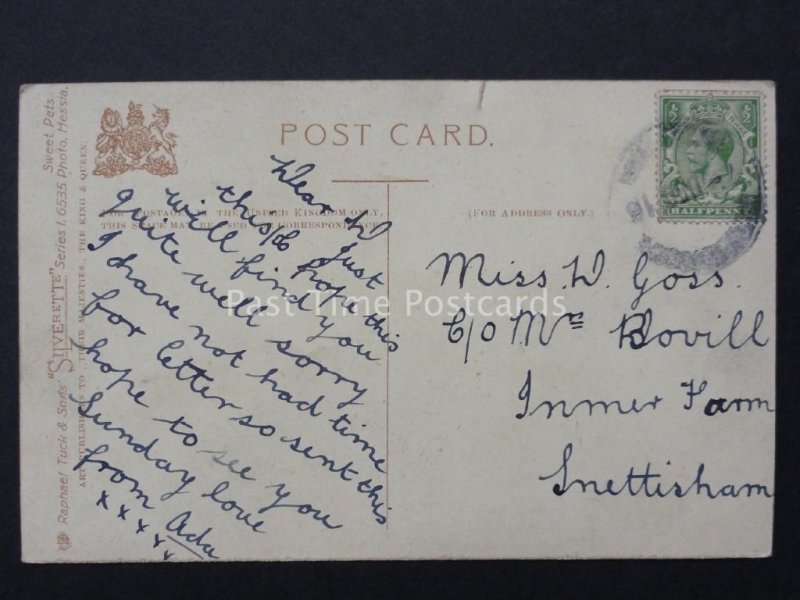 POST CARD.
FOR POSTAGE IN THE UNITED KINGDOM ONLY,
THIS SPACE MAY BE USED FOR CORRESPONDENCE
(FOR ADDRESS ONLY.)
Dear W Just
this p/c hope this
will find you
quite well sorry
I have not had time
for letter so sent this
hope to see you
Sunday love
from Ada
x x x x x
Miss. W. Goss.
C/o Mrs Bovill
Inmer Farm
Snettisham
½ ½
HALFPENNY
Raphael Tuck & Sons' "SILVERETTE" Series 1, 6535 Photo, Hessia.
Sweet Pets.
ART PUBLISHERS TO THEIR MAJESTIES, THE KING & QUEEN.
Past-Time Postcards